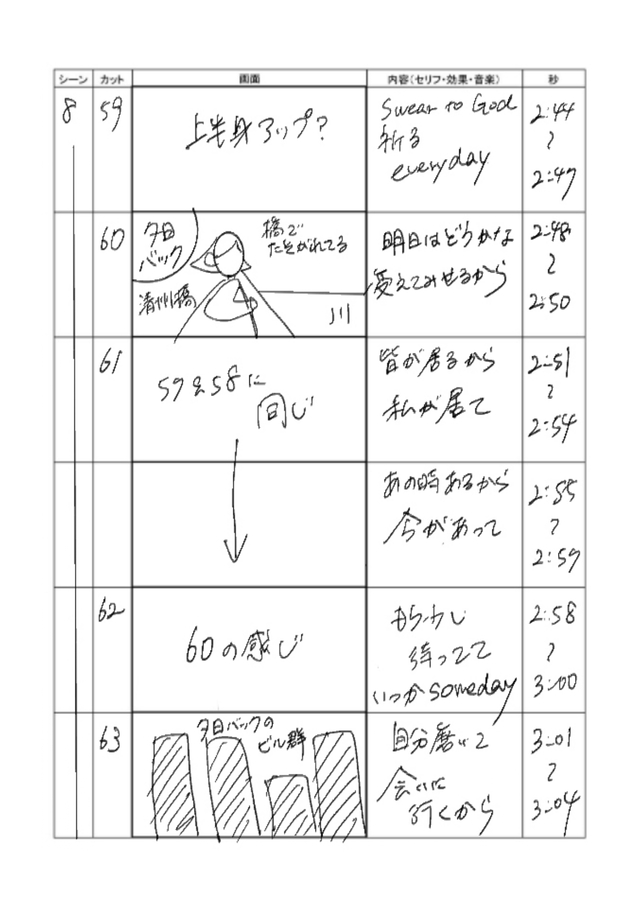 シーン カット 画面 内容(セリフ・効果・音楽) 秒
8 59
上半身アップ?
Swear to God
祈る
everyday
2:44
〜
2:47
60
夕日
バック
橋で
たそがれてる
清州橋
川
明日はどうかな
変えてみせるから
2:48
〜
2:50
61
59&58に
同じ
皆が居るから
私が居て
2:51
〜
2:54
あの時あるから
今があって
2:55
〜
2:59
62
60の感じ
もう少し
待ってて
いつかsomeday
2:58
〜
3:00
63
夕日バックの
ビル群
自分磨いて
会いに
行くから
3:01
〜
3:04